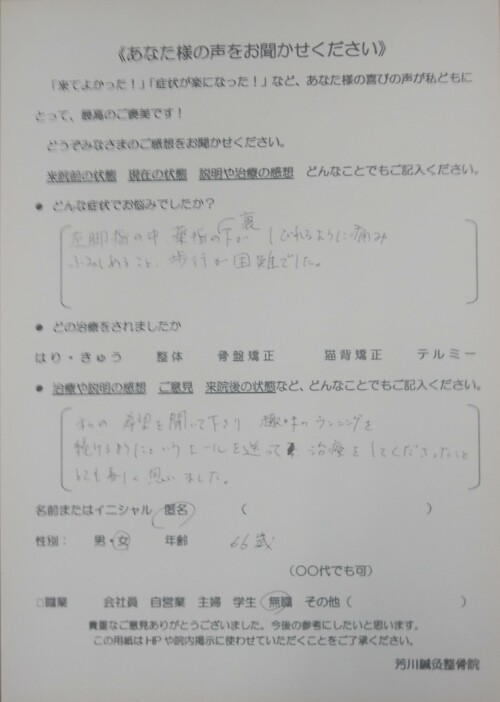 《あなた様の声をお聞かせください》
「来てよかった！」「症状が楽になった！」など、あなた様の喜びの声が私どもに
とって、最高のご褒美です！
どうぞみなさまのご感想をお聞かせください。
来院前の状態 現在の状態 説明や治療の感想 どんなことでもご記入ください。
● どんな症状でお悩みでしたか？
左脚指の中 薬指の下が 裏 しびれるように痛み
ふみしめること、歩行が困難でした。
● どの治療をされましたか
はり・きゅう 整体 骨盤矯正 猫背矯正 テルミー
● 治療や説明の感想 ご意見 来院後の状態など、どんなことでもご記入ください。
私の希望を聞いて下さり 趣味のランニングを
続けるようにというエールを送って 治療をしてくださったこと
とても 思いました。
名前またはイニシャル 匿名 （ ）
性別： 男・女 年齢 66歳
（〇〇代でも可）
□職業 会社員 自営業 主婦 学生 無職 その他（ ）
貴重なご意見ありがとうございました。今後の参考にしたいと思います。
この用紙はHPや院内掲示に使わせていただくことをご了承ください。
芳川鍼灸整骨院